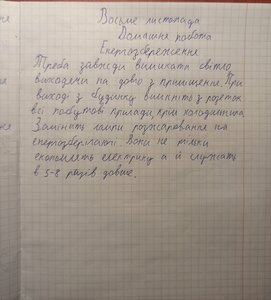 Восьме листопада
Домашня робота
Енергозбереження
Треба завжди вимикати світло
виходячи на довго з приміщення. При
виході з будинку вимкніть з розеток
всі побутові прилади, крім холодильника.
Замініть лампи розжарювання на
енергозберігаючі. Вони не тільки
економлять електрику а й служать
в 5-8 разів довше.